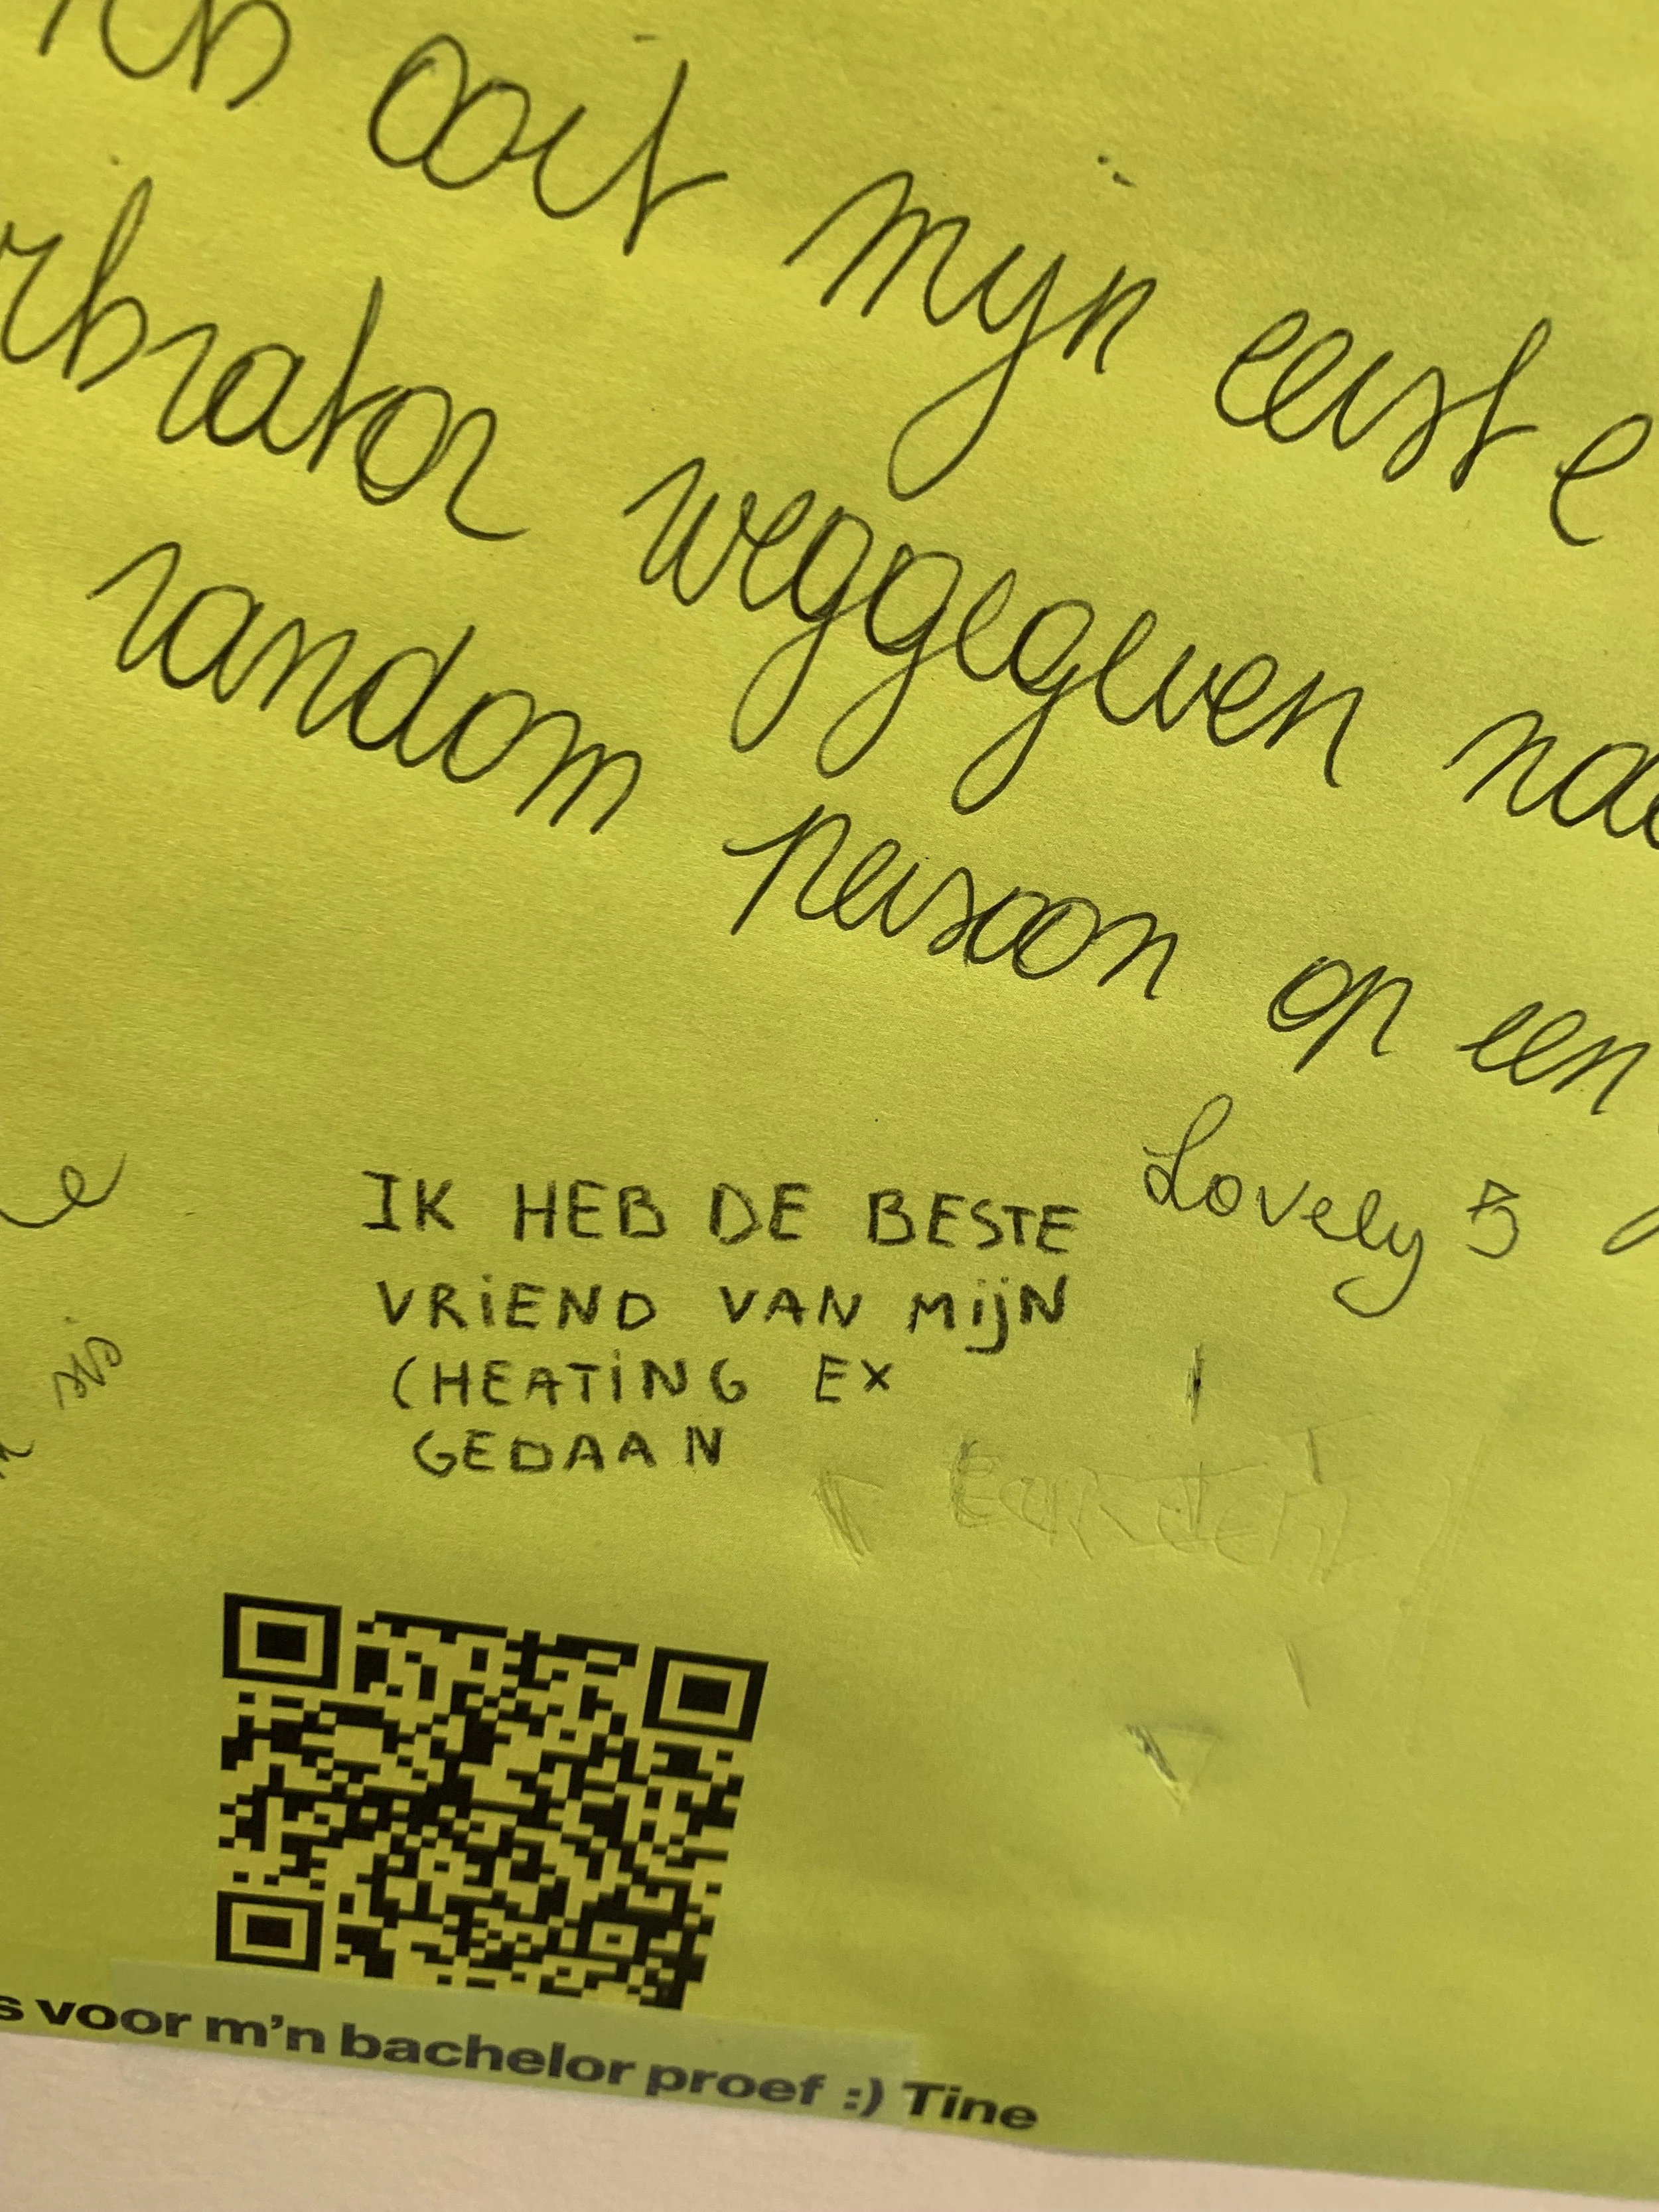 ooit mijn eerste
weggegeven
random persoon op een
Lovely
IK HEB DE BESTE
VRIEND VAN MIJN
CHEATING EX
GEDAAN
voor m'n bachelor proef :) Tine